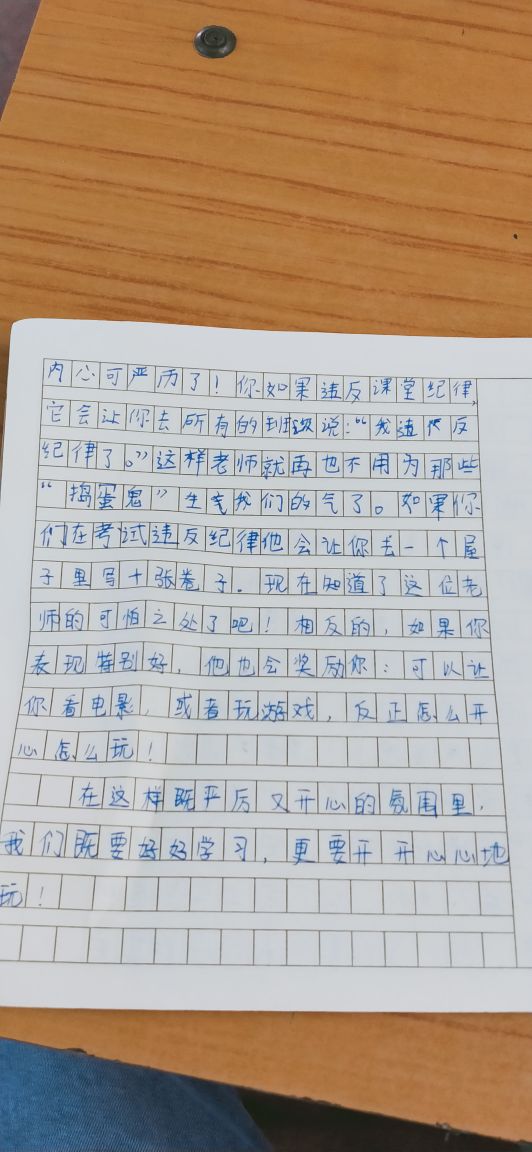 内心可严历了！你如果违反课堂纪律，
它会让你去所有的班级说：“我违反
纪律了。”这样老师就再也不用为那些
“捣蛋鬼”生我们的气了。如果你
们在考试违反纪律他会让你去一个屋
子里写十张卷子。现在知道了这位老
师的可怕之处了吧！相反的，如果你
表现特别好，他也会奖励你：可以让
你看电影，或者玩游戏，反正怎么开
心怎么玩！
在这样既严厉又开心的氛围里，
我们既要好好学习，更要开开心心地
玩！